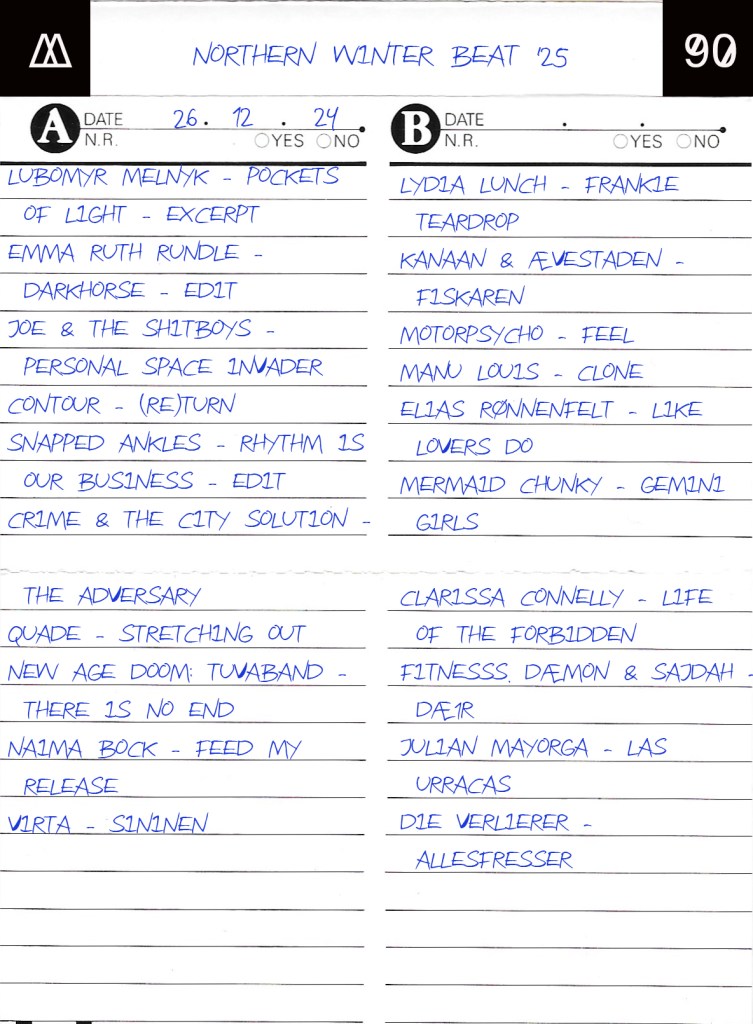 NORTHERN WINTER BEAT '25
90
A DATE 26. 12. 24
N.R. YES NO
LUBOMYR MELNYK - POCKETS
OF LIGHT - EXCERPT
EMMA RUTH RUNDLE -
DARKHORSE - EDIT
JOE & THE SHITBOYS -
PERSONAL SPACE INVADER
CONTOUR - (RE)TURN
SNAPPED ANKLES - RHYTHM IS
OUR BUSINESS - EDIT
CRIME & THE CITY SOLUTION -
THE ADVERSARY
QUADE - STRETCHING OUT
NEW AGE DOOM: TUVABAND -
THERE IS NO END
NAIMA BOCK - FEED MY
RELEASE
VIRTA - SININEN
B DATE . .
N.R. YES NO
LYDIA LUNCH - FRANKIE
TEARDROP
KANAAN & ÆVESTADEN -
FISKAREN
MOTORPSYCHO - FEEL
MANU LOUIS - CLONE
ELIAS RØNNENFELT - LIKE
LOVERS DO
MERMAID CHUNKY - GEMINI
GIRLS
CLARISSA CONNELLY - LIFE
OF THE FORBIDDEN
FITNESSS, DÆMON & SAJDAH -
DÆIR
JULIAN MAYORGA - LAS
URRACAS
DIE VERLIERER -
ALLESFRESSER